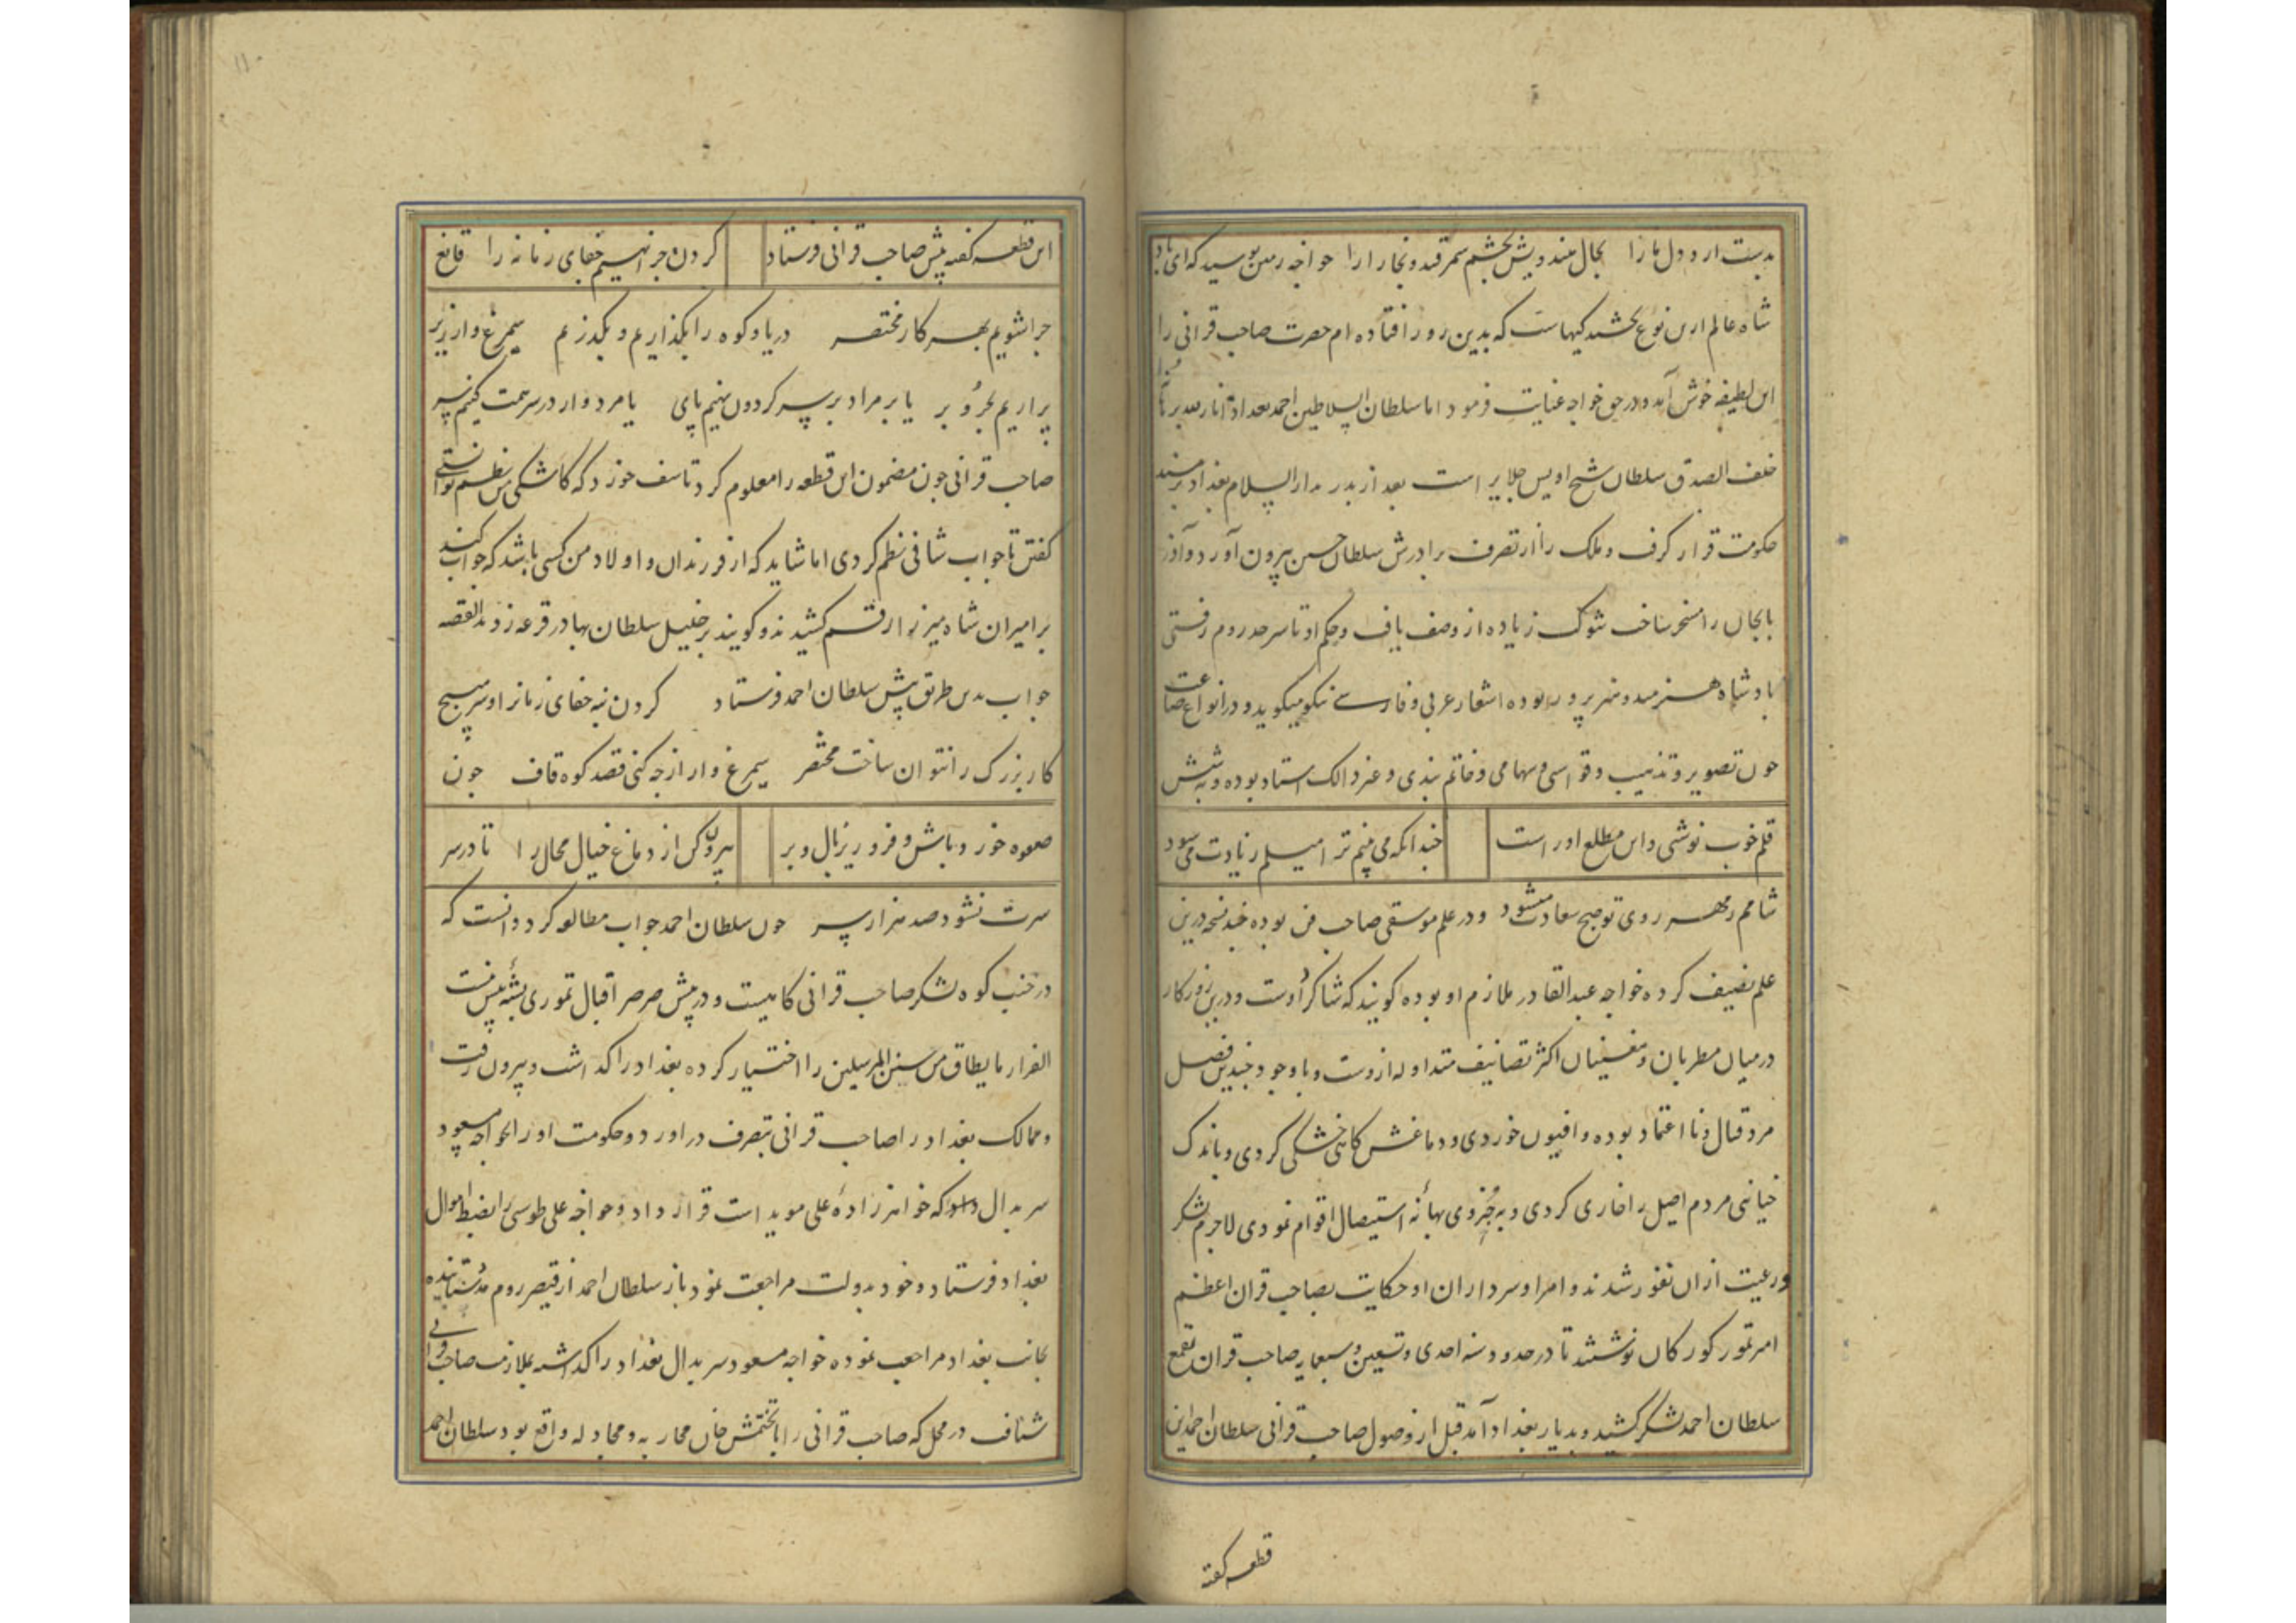 بدست ارد دل ما را بخال هندویش بخشم سمرقند و بخارا را خواجه زمین بوسید که ای پاد
شاه عالم ازین نوع بخشندگیهاست که بدین روز افتاده ام حضرت صاحب قرانی را
این لطیفه خوش آمد و در حق خواجه عنایت فرمود اما سلطان السلاطین احمد بغداد انار الله برهانه
خلف الصدق سلطان شیخ اویس جلایر است بعد از پدر بدار السلام بغداد بر مسند
حکومت قرار گرفت و ملک را از تصرف برادرش سلطان حسین بیرون آورد و آذر
بایجان را مسخر ساخت شوکت زیاده از وصف یافت و حکم او تا سرحد روم رفتی
پادشاه هنرمند و هنرپرور بوده اشعار عربی و فارسی نیکو میگوید و در انواع صناعت
چون تصویر و تذهیب و قواسی و سهامی و خاتم بندی و غیر ذالک استاد بوده و به شش
قلم خوب نوشتی و این مطلع اوراست چندانکه می بینم ترا میلم زیادت می شود
شامم ز مهر روی تو صبح سعادت میشود و در علم موسیقی صاحب فن بوده چند نسخه درین
علم تصنیف کرده خواجه عبدالقادر ملازم او بوده گویند که شاگرد اوست و درین روزگار
در میان مطربان و مغنیان اکثر تصانیف متداوله ازوست و با وجود چندین فضل
مرد قتال و نا اعتماد بوده و افیون خوردی و دماغش گاهی خشکی کردی و باندک
خیانتی مردم اصیل را خاری کردی و بجزوی بهانه استیصال اقوام نمودی لاجرم لشکر
و رعیت ازان نفور شدند و امرا و سرداران او حکایت بصاحب قران اعظم
امیر تمور کورکان نوشتند تا در حدود سنه احدی و تسعین و سبعمایه صاحب قران بقمع
سلطان احمد لشکر کشید و بدیار بغداد آمد قبل از وصول صاحب قرانی سلطان احمد این
قطعه گفته
این قطعه گفته پیش صاحب قرانی فرستاد گردن چرا نهیم جفای زمانه را قانع
چرا شویم بهر کار مختصر دریا و کوه را بگذاریم و بگذریم سیمرغ وار زیر
پر اریم بحر و بر یا بر مراد بر سر گردون نهیم پای یا مردوار در سر همت کنیم سر
صاحب قرانی چون مضمون این قطعه را معلوم کرد تاسف خورد که کاشکی من نظم توانستمی
گفتن تا جواب شافی نظم کردی اما شاید که از فرزندان و اولاد من کسی باشد که جواب گوید
بر امیران شاه میرزا رقم کشیدند و گویند بر خلیل سلطان بهادر قرعه زدند القصه
جواب بدین طریق پیش سلطان احمد فرستاد گردن بنه جفای زمان را و سر مپیچ
کار بزرگ را نتوان ساخت مختصر سیمرغ وار از چه کنی قصد کوه قاف چون
صعوه خورد باش و فرو ریز بال و پر بیرون کن از دماغ خیال محال را تا در سر
سرت نشود صد هزار سر چون سلطان احمد جواب مطالعه کرد دانست که
در جنب کوه لشکر صاحب قرانی کاهیست و در پیش صرصر اقبال تموری پشه بیش نیست
الفرار ما یطاق من سنن المرسلین را اختیار کرده بغداد را گذاشت و بیرون رفت
و ممالک بغداد را صاحب قرانی بتصرف دراورد و حکومت او را بخواجه مسعود
سربدال که خواهرزاده علی موید است قرار داد و خواجه علی طوسی را بضبط اموال
بغداد فرستاد و خود بدولت مراجعت نمود باز سلطان احمد از قیصر روم مدد ستانیده
بجانب بغداد مراجعت نموده خواجه مسعود سربدال بغداد را گذاشته بملازمت صاحب قرانی
شتافت در محل که صاحب قرانی را با تختمش خان محاربه و مجادله واقع بود سلطان احمد